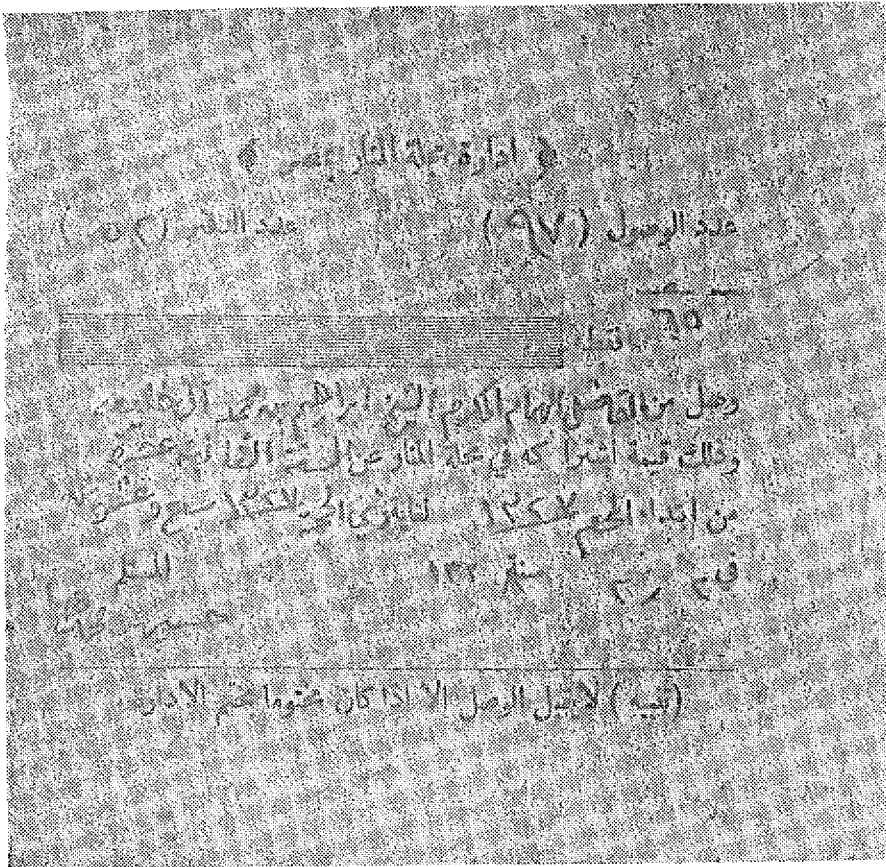 ﴿ ادارة مجلة المنار بمصر ﴾
عدد الوصول ( ٩٧ ) عدد الدفتر (
٦٥
وصل من الفاضل الهمام الاكرم الشيخ ابراهيم بن محمد آل خليفة
وذلك قيمة اشتراكه في مجلة المنار عن السنة الثانية عشرة
من ابتداء المحرم ١٣٢٧ لغاية ذي الحجة ١٣٢٧
في سنة ١٣٢ المستلم
(تنبيه) لا يقبل الوصل الا اذا كان مختوما بختم الادارة